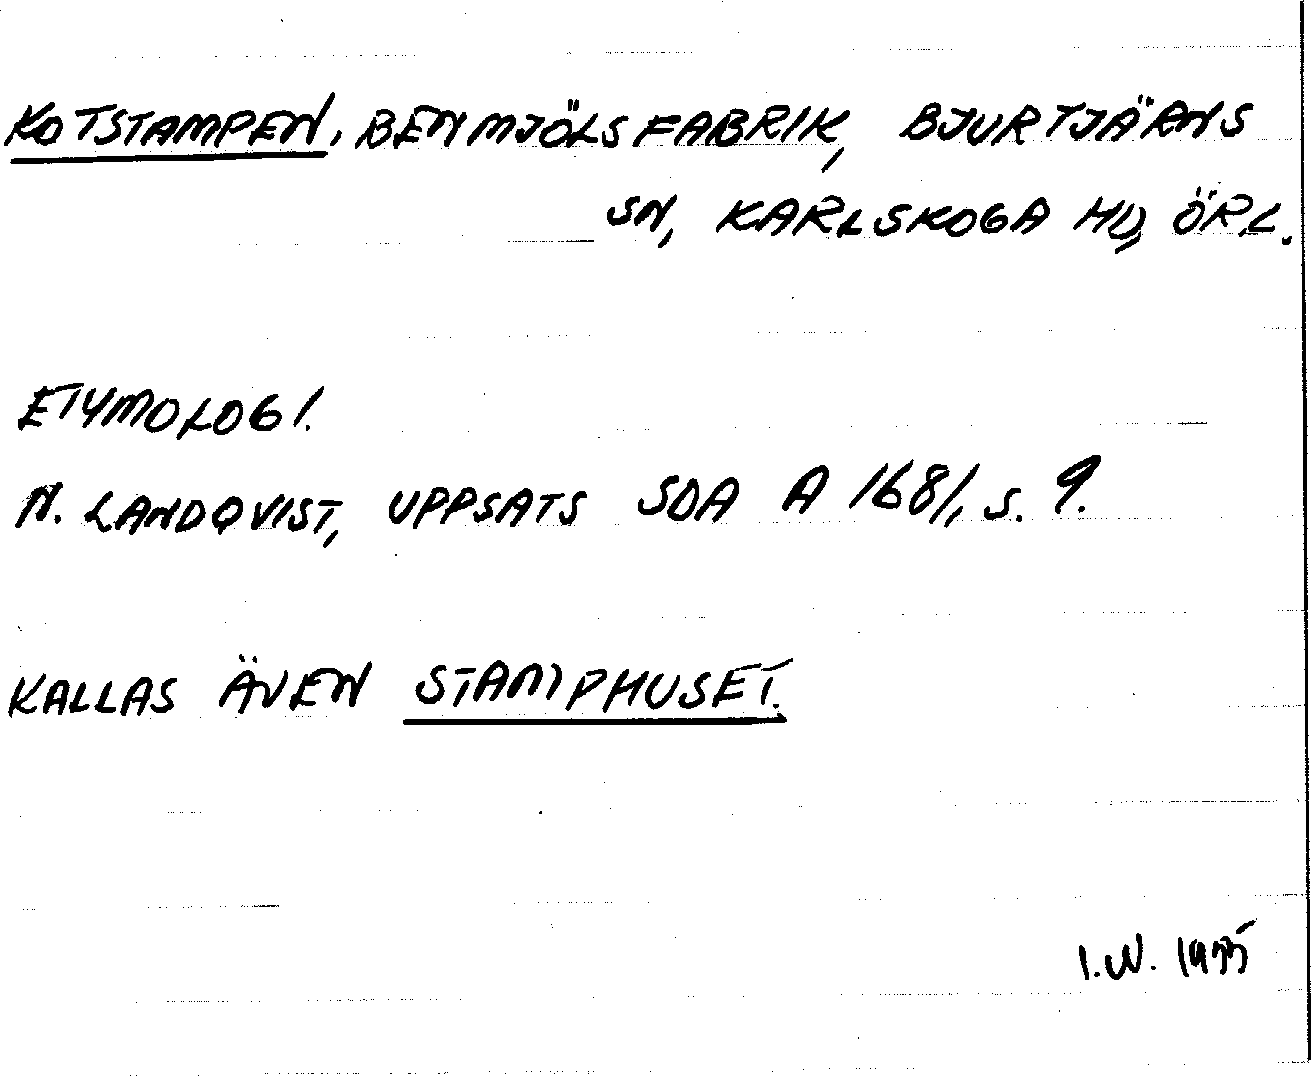 KOTSTAMPEN, BENMJÖLSFABRIK, BJURTJÄRNS
SN, KARLSKOGA HD, ÖRL.
ETYMOLOGI.
N. LANDQVIST, UPPSATS SOA A 1681, S. 9.
KALLAS ÄVEN STAMPHUSET.
I.W.